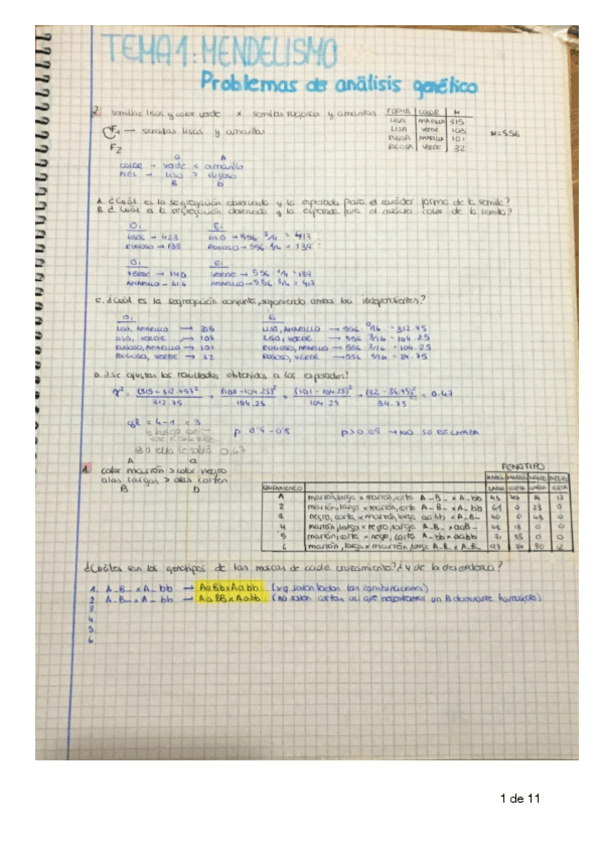 TEMA 1: MENDELISMO
Problemas de análisis genético
2. semillas lisas y color verde x semillas rugosas y amarillas
FORMA COLOR N
LISA AMARILLO 315
F1 — semillas lisas y amarillas
LISA VERDE 108
N=556
RUGOSA AMARILLO 101
F2
RUGOSA VERDE 32
a A
COLOR → verde < amarillo
liso > rugoso
B b
A. ¿Cuál es la segregación observada y la esperada para el carácter forma de la semilla?
B. ¿Cuál es la segregación observada y la esperada para el carácter color de la semilla?
Oi Ei
LISOS → 423 LISO → 556 · 3/4 = 417
RUGOSO → 133 RUGOSO → 556 · 1/4 = 139
Oi Ei
VERDE → 140 VERDE → 556 · 1/4 = 139
AMARILLO → 416 AMARILLO → 556 · 3/4 = 417
C. ¿Cuál es la segregación conjunta, suponiendo ambos loci independientes?
Oi Ei
LISO, AMARILLO → 315 LISO, AMARILLO → 556 · 9/16 = 312.75
LISO, VERDE → 108 LISO, VERDE → 556 · 3/16 = 104.25
RUGOSO, AMARILLO → 101 RUGOSO, AMARILLO → 556 · 3/16 = 104.25
RUGOSO, VERDE → 32 RUGOSO, VERDE → 556 · 1/16 = 34.75
D. ¿Se ajustan los resultados obtenidos a los esperados?
χ² = (315-312.75)²/312.75 + (108-104.25)²/104.25 + (101-104.25)²/104.25 + (32-34.75)²/34.75 = 0.47
gl = 4-1 = 3
p > 0.05 → NO SE RECHAZA
0.47
A a
1. color marrón > color negro
alas largas > alas cortas
B b
FENOTIPO
MARRÓN MARRÓN NEGRO NEGRO
LARGA CORTA LARGA CORTA
CRUZAMIENTO
marrón, larga x marrón, corta A_B_ x A_bb
2 marrón, larga x marrón, corta A_B_ x A_bb
3 negro, corta x marrón, larga aabb x A_B_
4 marrón, larga x negro, larga A_B_ x aaB_
5 marrón, corta x negro, corta A_bb x aabb
6 marrón, larga x marrón, larga A_B_ x A_B_
¿Cuáles son los genotipos de las moscas de cada cruzamiento? ¿y de la descendencia?
1. A_B_ x A_bb → AaBb x Aabb (xq salen todas las combinaciones)
2. A_B_ x A_bb → AaBB x Aabb (no salen cortas así que necesitamos un B dominante homocigoto)
3.
4.
5.
6.
1 de 11